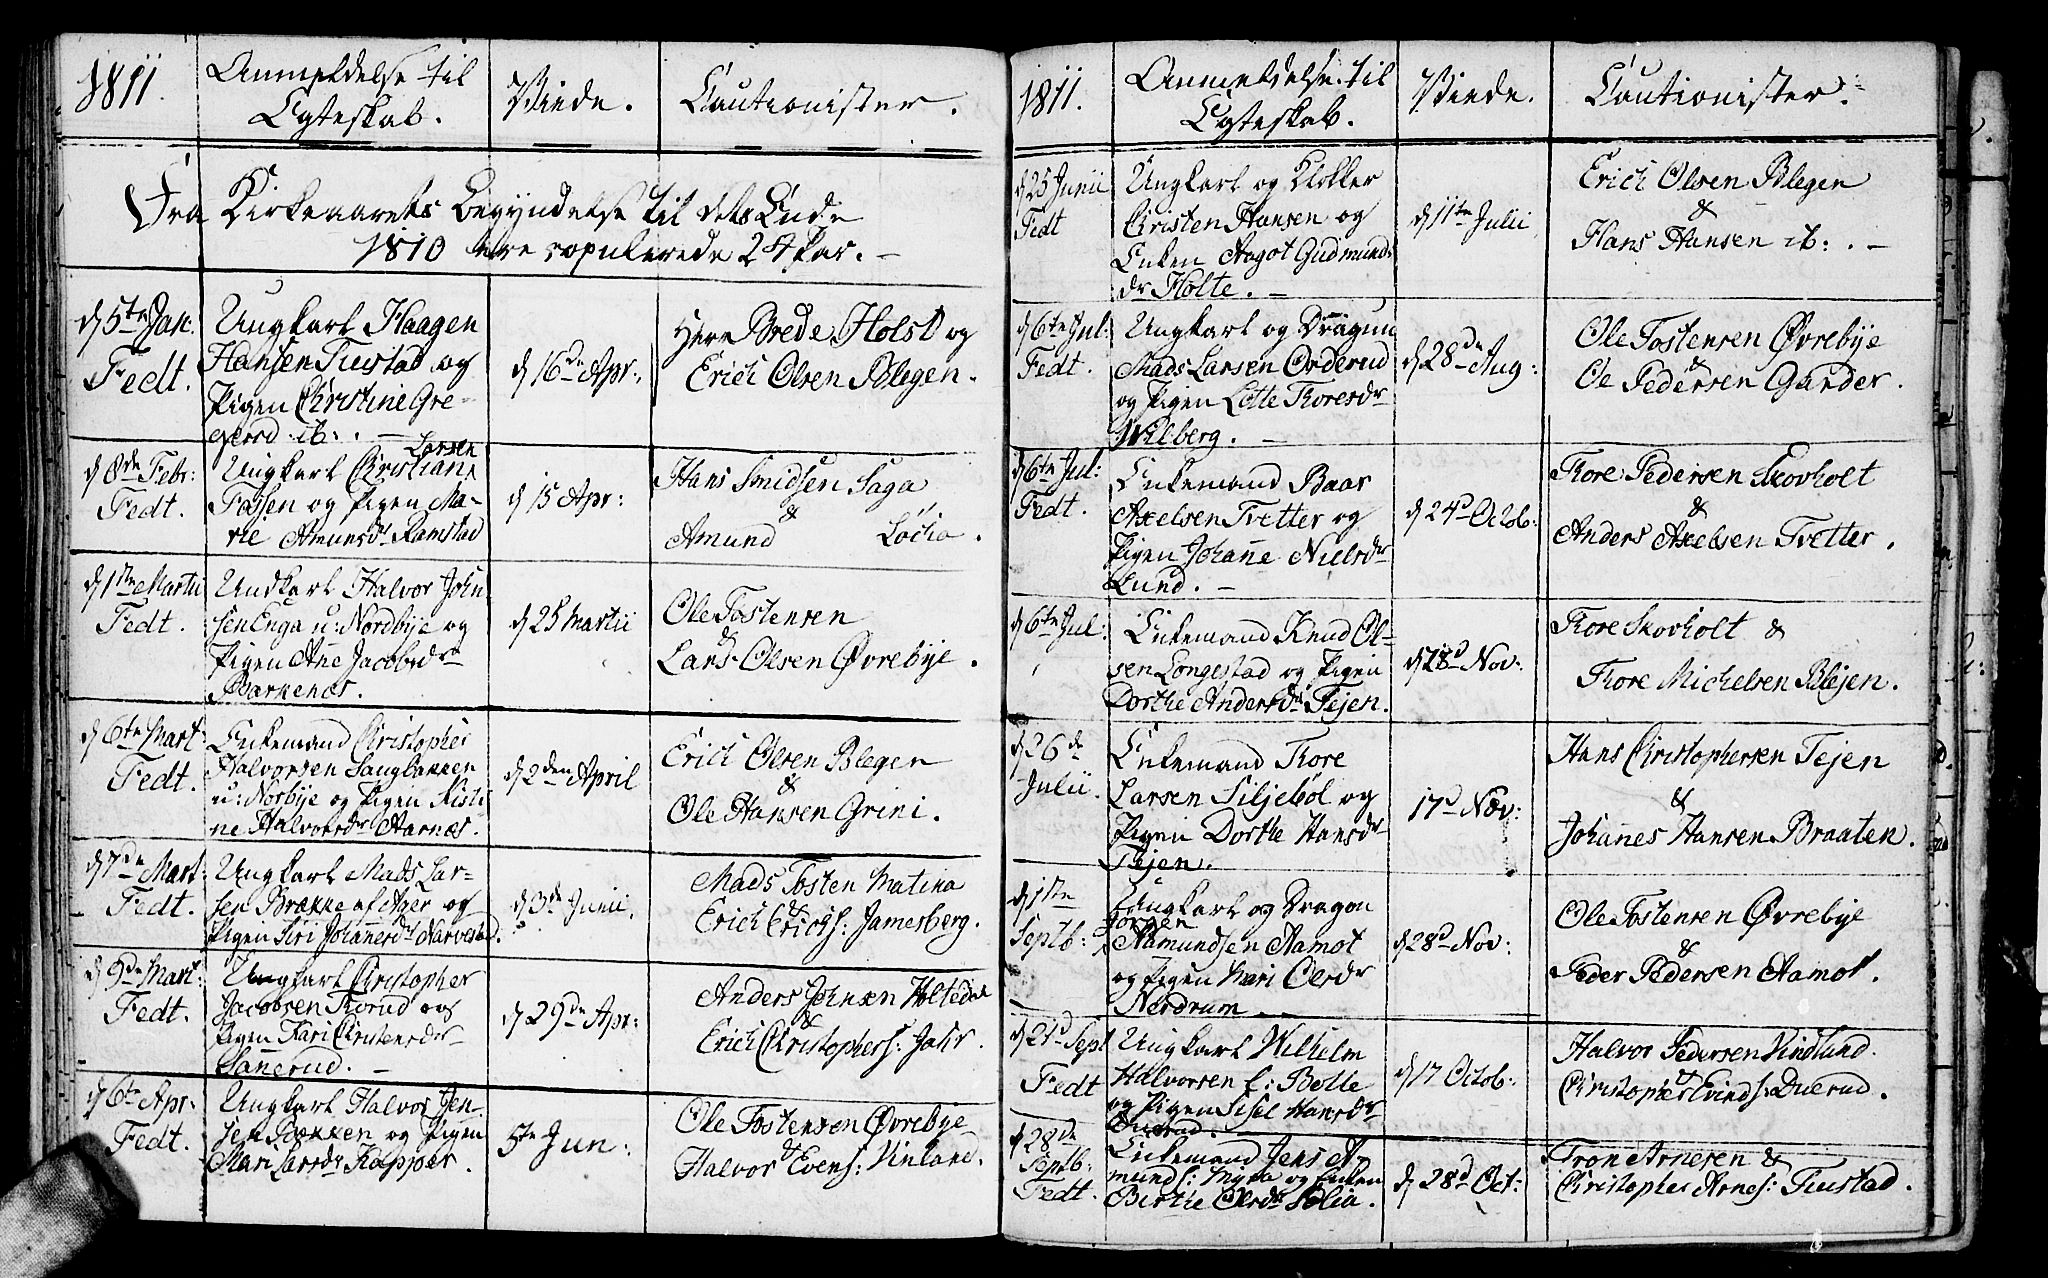 1811.
Anmeldelse til
Egteskab.
Viede.
Cautionister.
Fra Kirkeaarets Begyndelse til dets Ende
1810 ere copulerede 24 par. -
d 5te Jan:
Fedt.
Ungkarl Haagen
Hansen Tiustad og
Pigen Christine Gre-
gersd ib:. -
d 16de Apr:
Herr Brede Holst og
Erich Olsen Blegen.
d 8de Febr:
Fedt.
Larsen
Ungkarl Christian
Fossen og Pigen Ma-
rie Amundsdr Ramstad
d 15 Apr:
Hans Smidsen Saga
&
Amund Löchα.
d 1ste Martii
Fedt.
Undkarl Halvor John
sen Enga u: Nordbye og
Pigen Ane Jacobsdr
Barkenæs.
d 25 Martii
Ole Tostensen
&
Lars Olsen Øvrebye.
d 6te Mart:
Fedt.
Enkemand Christopher
Halvorsen Haugbakken
u: Norbye og Pigen Kisti
ne Halvorsdr Aarnæs.
d 2den April
Erich Olsen Blegen
&
Ole Hansen Grini.
d 7de Mart:
Fedt.
Ungkarl Mads Lar-
sen Brække af Ager og
Pigen Siri Johannesdr Narvestad.
d 3de Junii.
Mads Tosten Matina
&
Erich Erichs: Jamesberg.
d 9de Mart:
Fedt.
Ungkarl Christopher
Jacobsen Thorud og
Pigen Kari Christensdr
Sanerud. -
d 29de Apr:
Anders Johnsen Holtedal
&
Erich Christophers: Jahr.
d 6te Apr:
Fedt.
Ungkarl Halvor Jen
sen Bakken og Pigen
Mari Larsdr Kapper.
5te Jun:
Ole Tostensen Øvrebye
&
Halvor Evens: Vinland.
1811.
Anmeldelse til
Egteskab.
Viede.
Cautionister.
d 25 Junii
Fedt
Ungkarl og Kloller
Christen Hansen og
Enken Aagot Gudmunds
dr Holte. -
d 11te Julii
Erich Olsen Blegen
&
Hans Hansen ib:. -
d 6te Jul:
Fedt.
Ungkarl og Dragun
Mads Larsen Ovderud
og Pigen Lotte Thoresdr
Wilberg. -
d 28de Aug:
Ole Tostensen Øvrebye
&
Oe Pedersen Garder.
d 6te Jul:
Fedt.
Enkemand Baar
Axelsen Tvetter og
Pigen Johane Nielsdr
Lund. -
d 24d Octob:
Thore Pedersen Skovholt
&
Anders Axelsen Tvetter.
d 6te Jul:
Enkemand Knud Ol-
sen Longestad og Pigen
Dorthe Andersdr Tejen.
d 28d Nov:
Thore Skovholt &
Thore Michelsen Blejen.
d 26de
Julii.
Enkemand Thore
Larsen Siljeböl og
Pigen Dorthe Hansdr
Tejen.
17d Nov:
Hans Christophersen Tejen
&
Johannes Hansen Braaten.
d 1ste
Septb:
Ungkarl og Dragon
Jörgen
Aamundsen Aamot
og Pigen Mari Olsdr
Nerdrum
d 28d Nov:
Ole Tostensen Øvrebye
&
Peder Pedersen Aamot.
d 21d Sept
Fedt
Ungkarl Wilhelm
Halvorsen f: Bölle
og Pigen Sisel Hansdr
Duerud.
d 17 Octob:
Halvor Pedersen Vindlund.
&
Christopher Evinds: Duerud.
d 28de
Septb:
Fedt.
Enkemand Jens A-
munds: Myra og Enken
Birthe Olsdr Solia.
d 28d Oct:
Tron Arnesen &
Christopher Arnes: Tiustad.